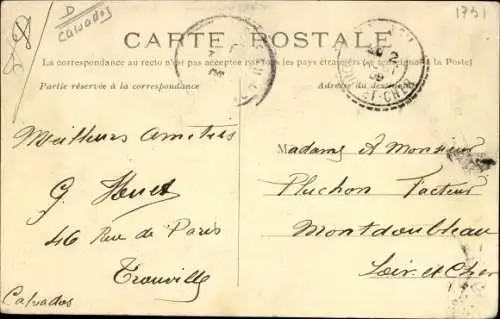 D
Calvados
1731
CARTE POSTALE
La correspondance au recto n'est pas acceptée par tous les pays étrangers (se renseigner à la Poste)
Partie réservée à la correspondance
Adresse du destinataire
Meilleurs amitiés
G. Houet
46 Rue de Paris
Trouville
Calvados
Madame & Monsieur
Pluchon Facteur
Montdoubleau
Loir et Cher